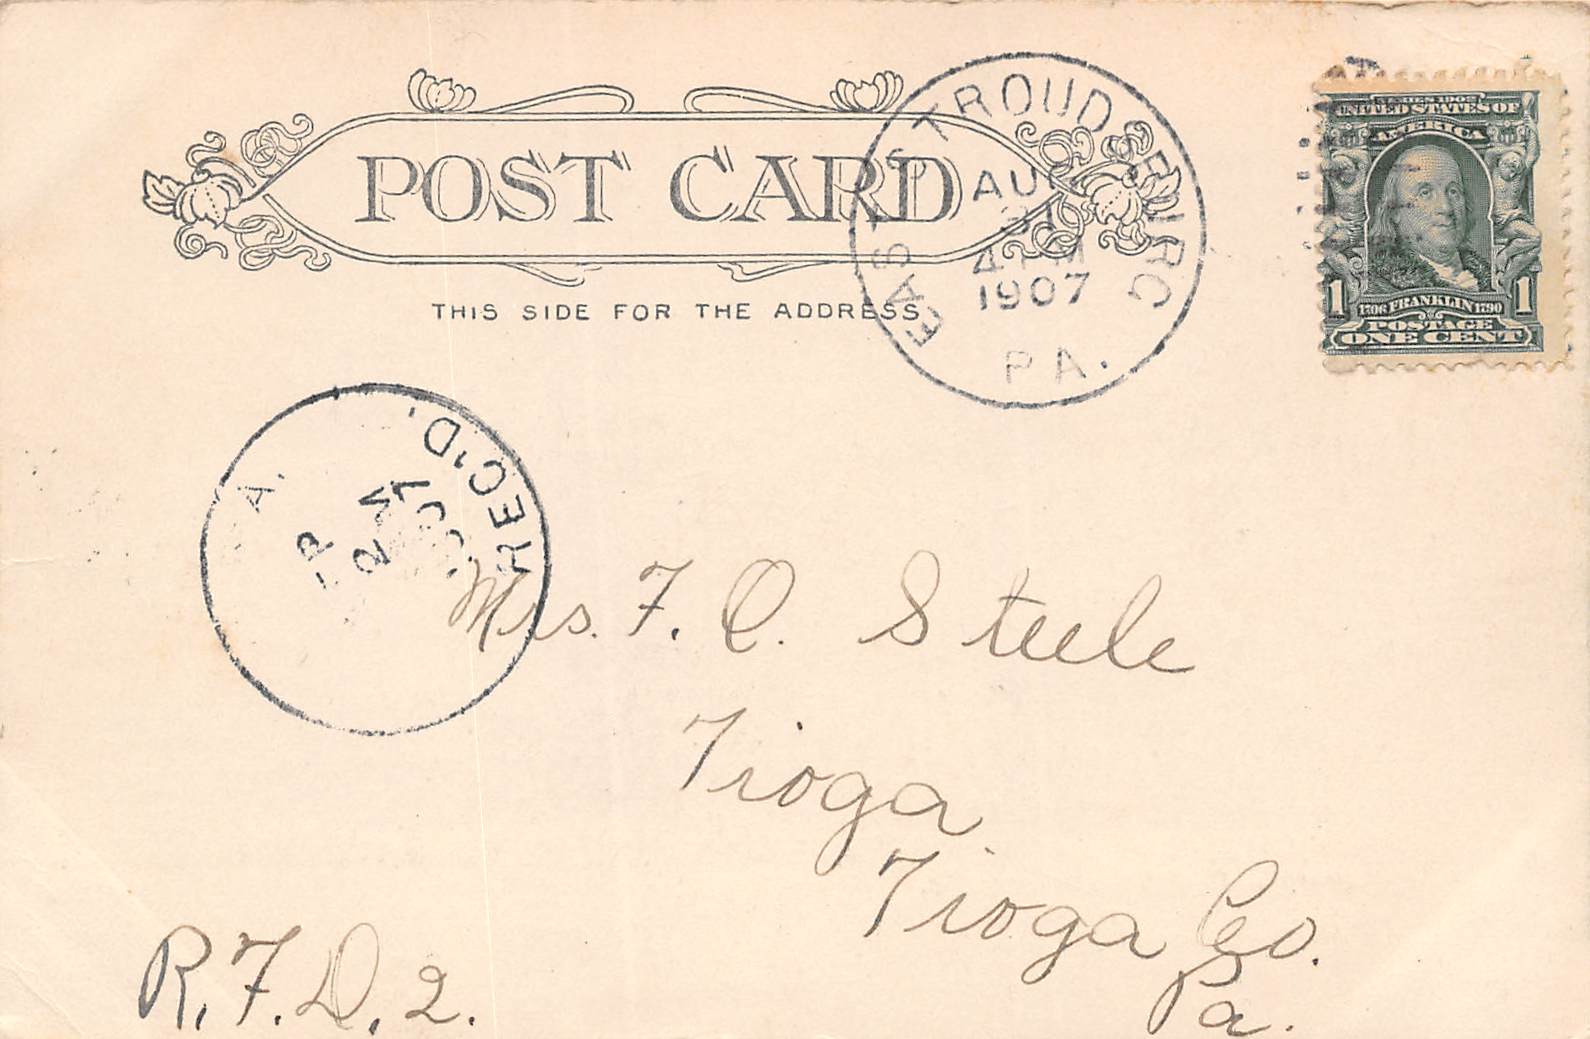 POST CARD
THIS SIDE FOR THE ADDRESS
EAST STROUDSBURG
AUG
4 PM
1907
PA.
SERIES 1902
UNITED STATES OF
AMERICA
1706 FRANKLIN 1790
1 1
POSTAGE
ONE CENT
REC'D.
2 M
1907
A.
Mrs. F. O. Steele
Tioga
Tioga Co.
Pa.
R.F.D. 2.